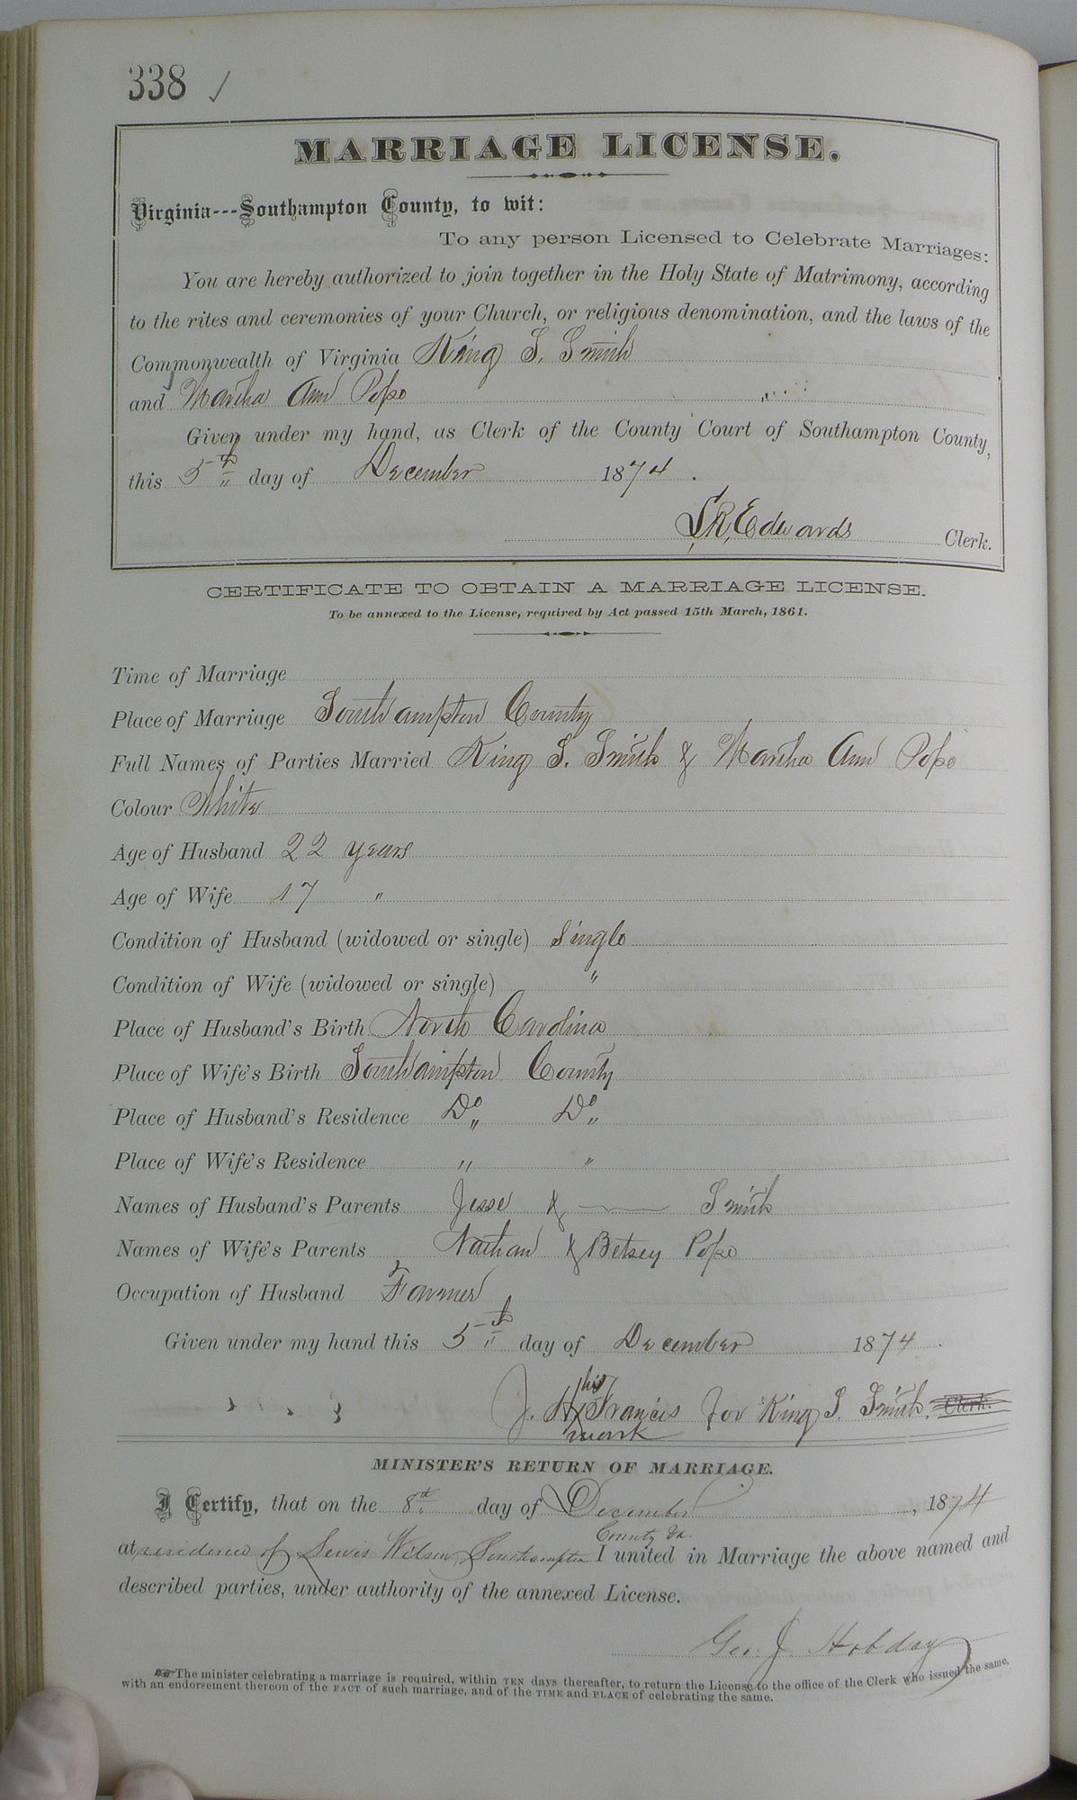 338 ✓
MARRIAGE LICENSE.
Virginia---Southampton County, to wit:
To any person Licensed to Celebrate Marriages:
You are hereby authorized to join together in the Holy State of Matrimony, according
to the rites and ceremonies of your Church, or religious denomination, and the laws of the
Commonwealth of Virginia King S. Smith
and Martha Ann Pope
Given under my hand, as Clerk of the County Court of Southampton County,
this 5th day of December 1874.
L. R. Edwards Clerk.
CERTIFICATE TO OBTAIN A MARRIAGE LICENSE.
To be annexed to the License, required by Act passed 15th March, 1861.
Time of Marriage
Place of Marriage Southampton County
Full Names of Parties Married King S. Smith & Martha Ann Pope
Colour White
Age of Husband 22 years
Age of Wife 17 "
Condition of Husband (widowed or single) Single
Condition of Wife (widowed or single) "
Place of Husband's Birth North Carolina
Place of Wife's Birth Southampton County
Place of Husband's Residence Do " Do "
Place of Wife's Residence " "
Names of Husband's Parents Jesse & — Smith
Names of Wife's Parents Nathan & Betsey Pope
Occupation of Husband Farmer
Given under my hand this 5th day of December 1874.
his
J. H. X Francis for King S. Smith. Clerk.
mark
MINISTER'S RETURN OF MARRIAGE.
I Certify, that on the 8th day of December, 1874
County Va.
at residence of Lewis Wilson Southampton I united in Marriage the above named and
described parties, under authority of the annexed License.
Geo. J. Hobday
The minister celebrating a marriage is required, within TEN days thereafter, to return the License to the office of the Clerk who issued the same,
with an endorsement thereon of the FACT of such marriage, and of the TIME and PLACE of celebrating the same.